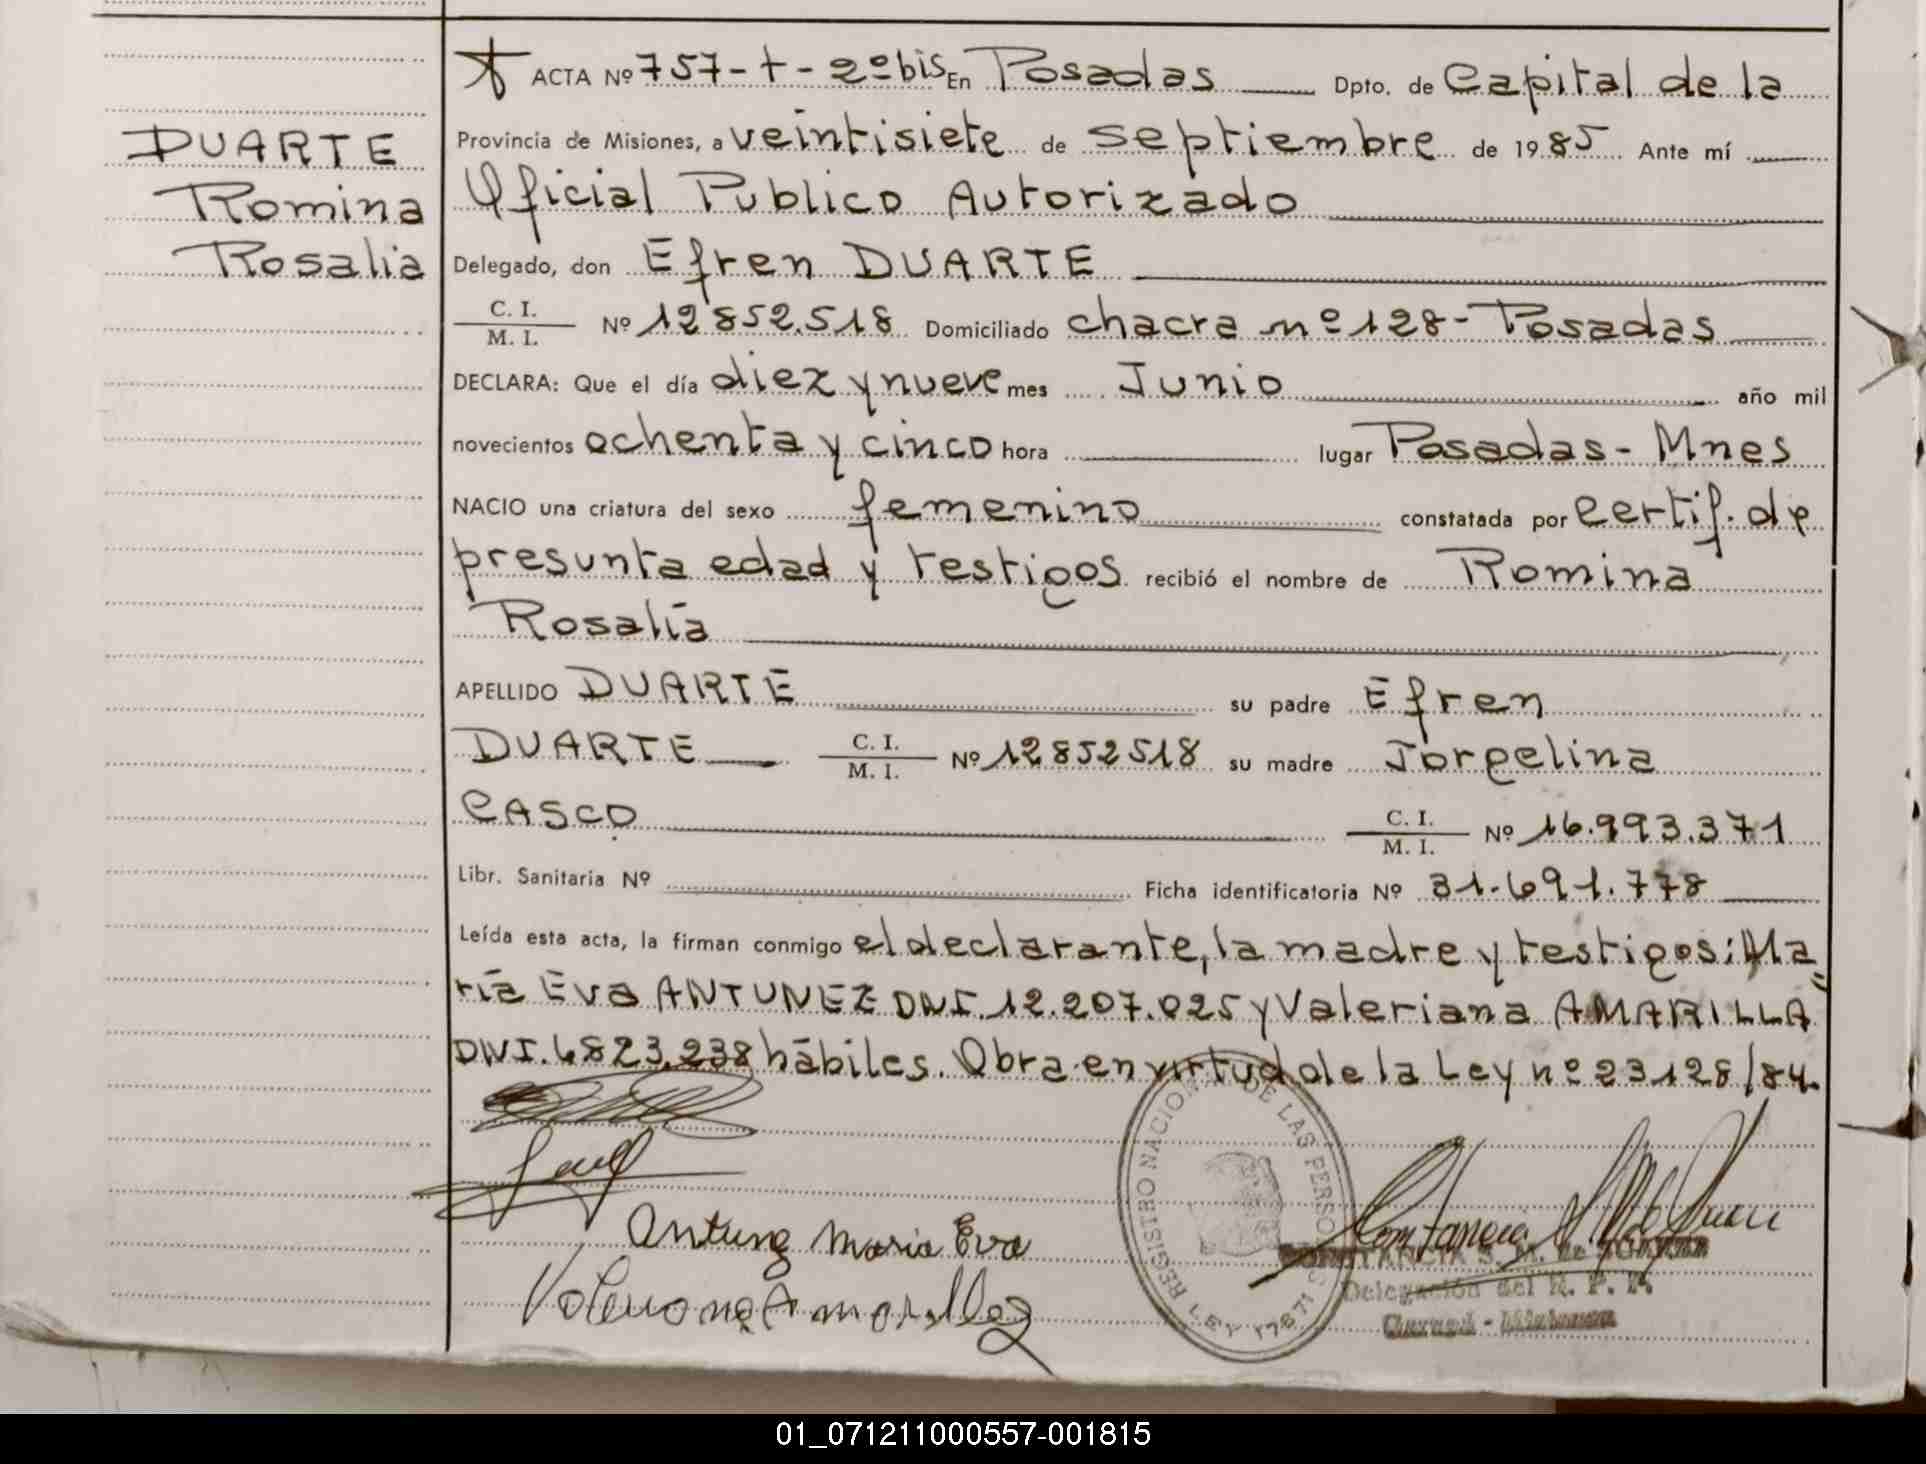 DUARTE
Romina
Rosalia
ACTA Nº 757-t-2º bis En Posadas Dpto. de Capital de la
Provincia de Misiones, a veintisiete de septiembre de 1985 Ante mí
Oficial Publico Autorizado
Delegado, don Efren DUARTE
C. I.
M. I. Nº 12852.518 Domiciliado chacra nº 128-Posadas
DECLARA: Que el día diez y nueve mes Junio año mil
novecientos ochenta y cinco hora lugar Posadas-Mnes
NACIO una criatura del sexo femenino constatada por Certif. de
presunta edad y testigos recibió el nombre de Romina
Rosalía
APELLIDO DUARTE su padre Efren
DUARTE C. I.
M. I. Nº 12852518 su madre Jorgelina
CASCO C. I.
M. I. Nº 16.993.371
Libr. Sanitaria Nº Ficha identificatoria Nº 31.691.778
Leída esta acta, la firman conmigo el declarante, la madre y testigos: Ma=
ría Eva ANTUNEZ DNI. 12.207.025 y Valeriana AMARILLA
DNI. 6823.238 hábiles. Obra en virtud de la Ley nº 23128/84.
Antunez Maria Eva
REGISTRO NACIONAL DE LAS PERSONAS
LEY 17671
Delegación del R. P. P.
01_071211000557-001815